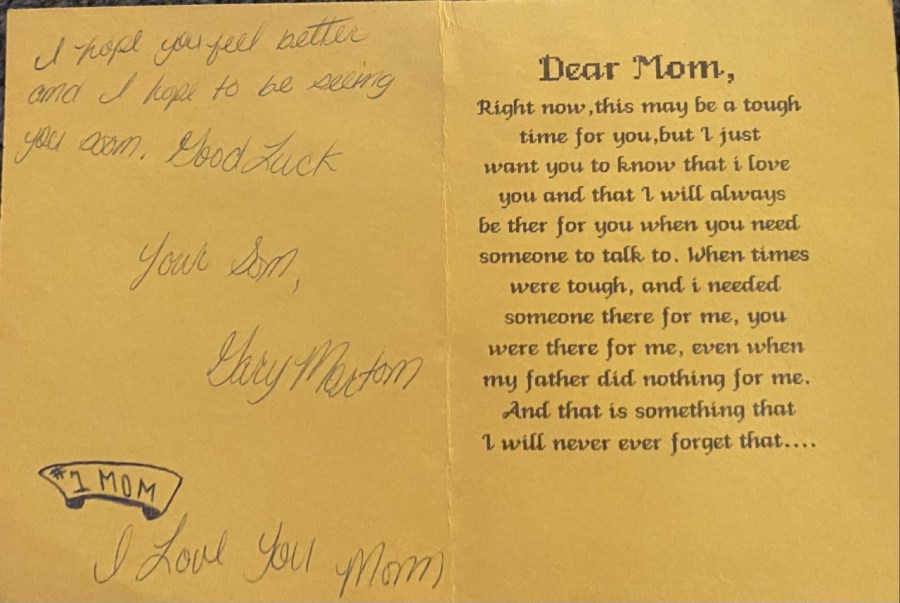 I hope you feel better
and I hope to be seeing
you soon. Good Luck
Your Son,
Gary Martom
#1 MOM
I Love You Mom
Dear Mom,
Right now,this may be a tough
time for you,but I just
want you to know that i love
you and that I will always
be ther for you when you need
someone to talk to. When times
were tough, and i needed
someone there for me, you
were there for me, even when
my father did nothing for me.
And that is something that
I will never ever forget that....